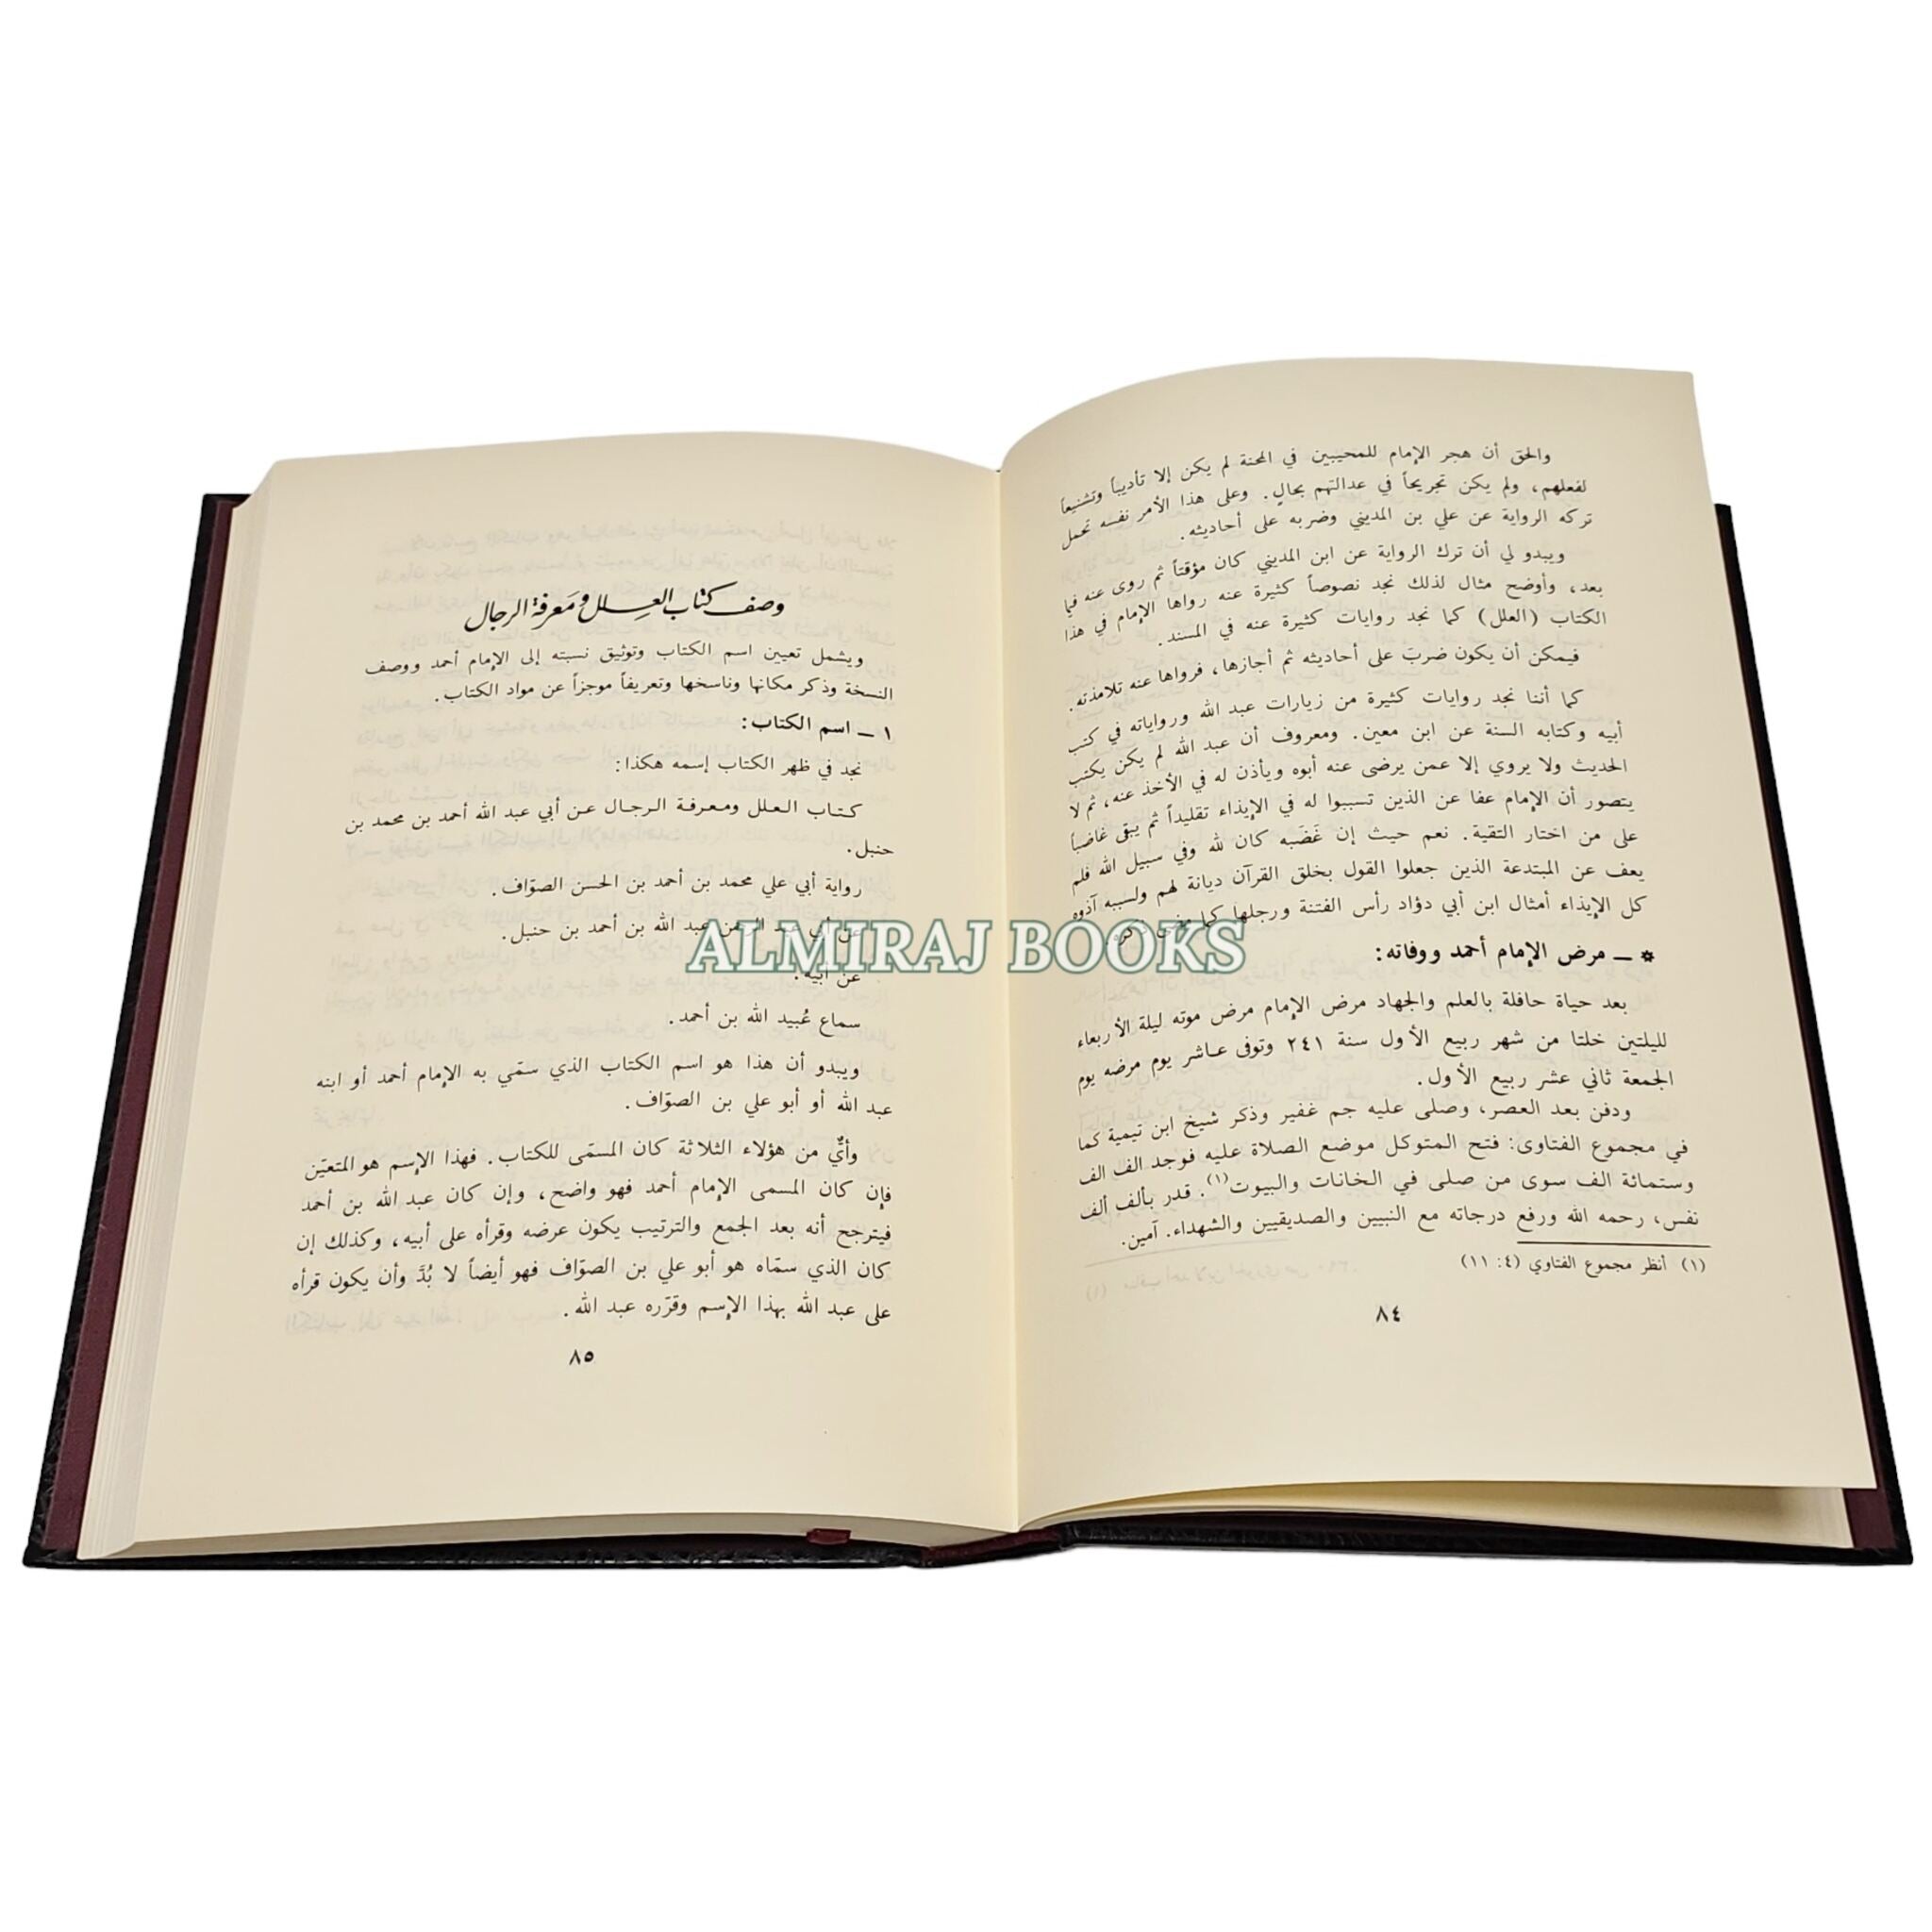 والحق أن هجر الإمام للمجيبين في المحنة لم يكن إلا تأديباً وتشنيعاً
لفعلهم، ولم يكن تجريحاً في عدالتهم بحالٍ. وعلى هذا الأمر نفسه تحمل
تركه الرواية عن علي بن المديني وضربه على أحاديثه.
ويبدو لي أن ترك الرواية عن ابن المديني كان مؤقتاً ثم روى عنه فيما
بعد، وأوضح مثال لذلك نجد نصوصاً كثيرة عنه رواها الإمام في هذا
الكتاب (العلل) كما نجد روايات كثيرة عنه في المسند.
فيمكن أن يكون ضربَ على أحاديثه ثم أجازها، فرواها عنه تلامذته.
كما أننا نجد روايات كثيرة من زيارات عبد الله ورواياته في كتب
أبيه وكتابه السنة عن ابن معين. ومعروف أن عبد الله لم يكن يكتب
الحديث ولا يروي إلا عمن يرضى عنه أبوه ويأذن له في الأخذ عنه، ثم لا
يتصور أن الإمام عفا عن الذين تسببوا له في الإيذاء تقليداً ثم يبقى غاضباً
على من اختار التقية. نعم حيث إن غَضَبه كان لله وفي سبيل الله فلم
يعف عن المبتدعة الذين جعلوا القول بخلق القرآن ديانة لهم ولسببه آذوه
كل الإيذاء أمثال ابن أبي دؤاد رأس الفتنة ورجلها كما مضى ذكره.
* ــ مرض الإمام أحمد ووفاته:
بعد حياة حافلة بالعلم والجهاد مرض الإمام مرض موته ليلة الأربعاء
لليلتين خلتا من شهر ربيع الأول سنة ٢٤١ وتوفى عاشر يوم مرضه يوم
الجمعة ثاني عشر ربيع الأول.
ودفن بعد العصر، وصلى عليه جم غفير وذكر شيخ ابن تيمية كما
في مجموع الفتاوى: فتح المتوكل موضع الصلاة عليه فوجد الف الف
وستمائة الف سوى من صلى في الخانات والبيوت(١). قدر بألف ألف
نفس، رحمه الله ورفع درجاته مع النبيين والصديقيين والشهداء. آمين.
(١) أنظر مجموع الفتاوي (٤: ١١)
٨٤
وصف كتاب العِلل ومَعرفة الرجال
ويشمل تعيين اسم الكتاب وتوثيق نسبته إلى الإمام أحمد ووصف
النسخة وذكر مكانها وناسخها وتعريفاً موجزاً عن مواد الكتاب.
١ ــ اسم الكتاب:
نجد في ظهر الكتاب إسمه هكذا:
كتاب العلل ومعرفة الرجال عن أبي عبد الله أحمد بن محمد بن
حنبل.
رواية أبي علي محمد بن أحمد بن الحسن الصوّاف.
عن أبي عبد الرحمن عبد الله بن أحمد بن حنبل.
عن أبيه.
سماع عُبيد الله بن أحمد.
ويبدو أن هذا هو اسم الكتاب الذي سمّي به الإمام أحمد أو ابنه
عبد الله أو أبو علي بن الصوّاف.
وأيٌّ من هؤلاء الثلاثة كان المسمّى للكتاب. فهذا الإسم هو المتعيّن
فإن كان المسمى الإمام أحمد فهو واضح، وإن كان عبد الله بن أحمد
فيترجح أنه بعد الجمع والترتيب يكون عرضه وقرأه على أبيه، وكذلك إن
كان الذي سمّاه هو أبو علي بن الصوّاف فهو أيضاً لا بُدَّ وأن يكون قرأه
على عبد الله بهذا الإسم وقرّره عبد الله.
٨٥
ALMIRAJ BOOKS